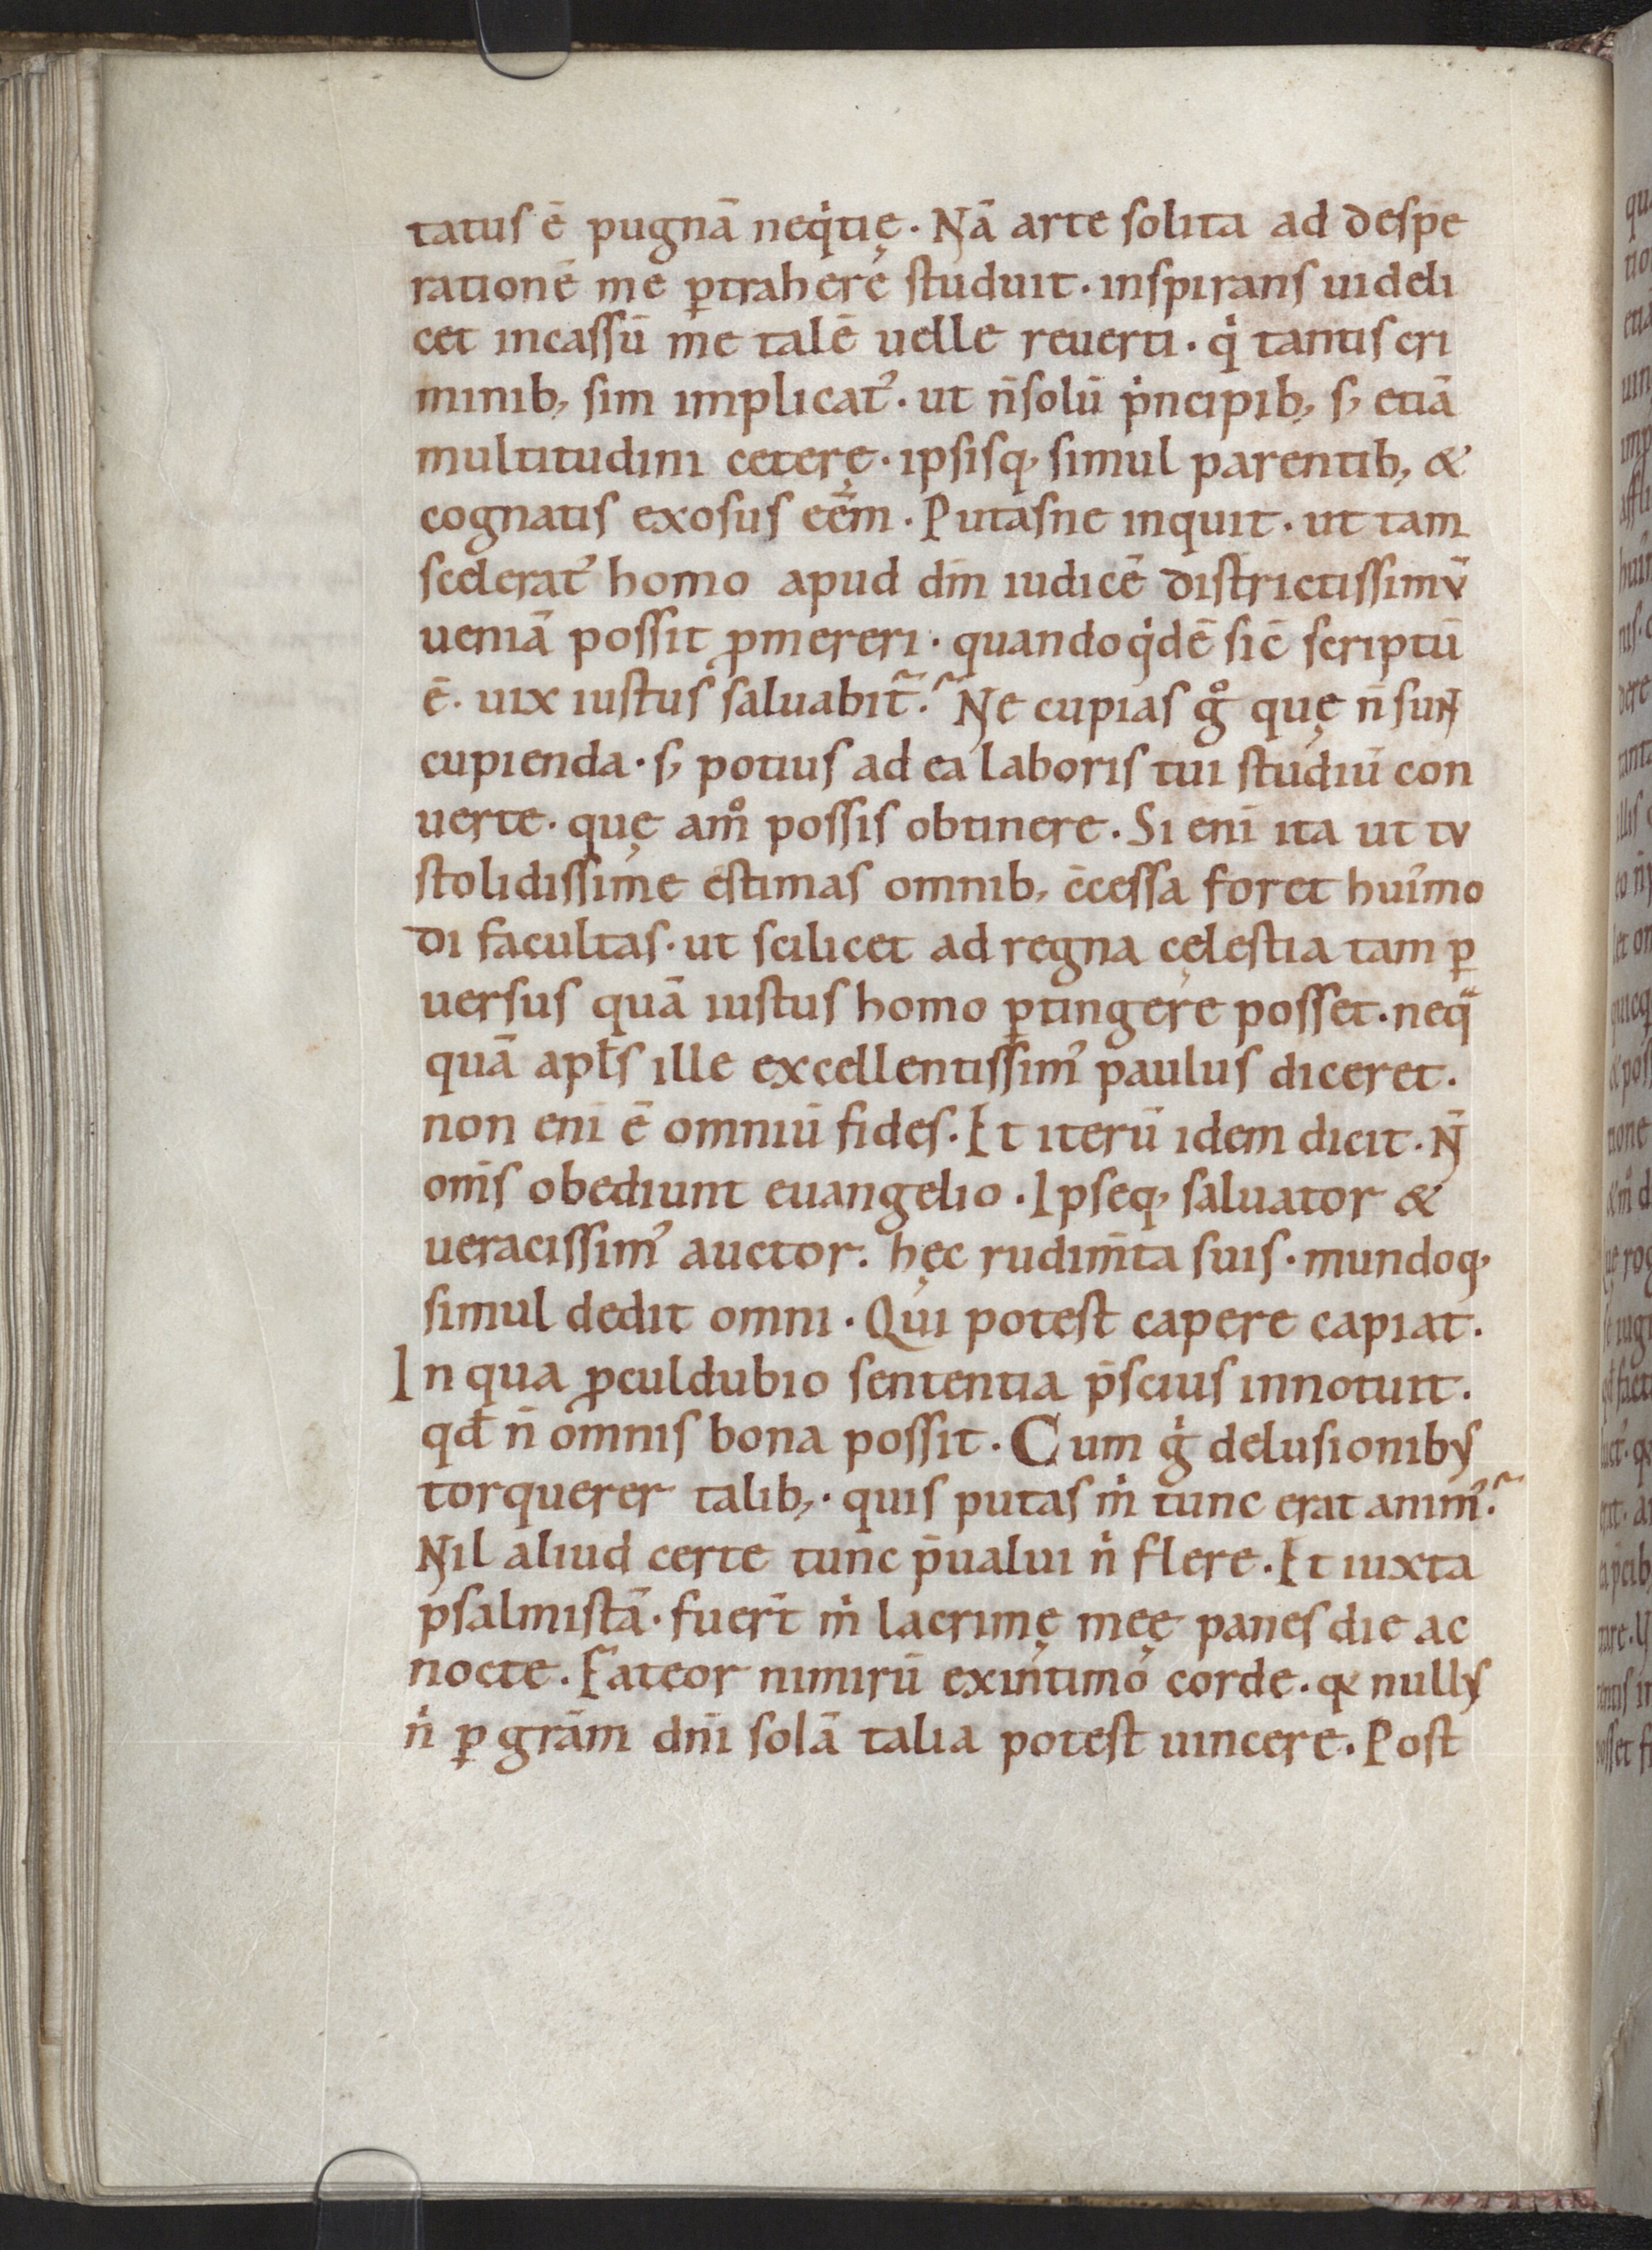 tatus ē pugnā neq̇tię. Nā arte solita ad despe
rationē me ꝑtrahere studuit. inspirans uideli
cet incassū me talē uelle reuerti. q̇ tantis cri
minib; sim implicat᾿. ut n̄ solū ṗncipib; s; etiā
multitudini ceterę. ipsisq; simul parentib; &
cognatis exosus eēm. Putasne inquit. ut tam
scelerat᾿ homo apud dm̄ iudicē districtissimū
ueniā possit ꝓmereri. quandoq̇dē sic̄ scriptū
ē. uix iustus saluabit᷑? Ne cupias gͦ quę n̄ sunt
cupienda. s; potius ad ea laboris tui studiū con
uerte. quę am̊ possis obtinere. Si eni̅ ita ut tu
stolidissime estimas omnib; c̄cessa foret hui᾿mo
di facultas. ut scilicet ad regna cęlestia tam ꝑ
uersus quā iustus homo ꝑtingere posset. neq̄
quā apłs ille excellentissim᾿ paulus diceret.
non eni̅ ē omniū fides. Et iterū idem dicit. N̄
om̄s obediunt euangelio. Ipseq; saluator &
ueracissim᾿ auctor. hęc rudim̄ta suis. mundoq;
simul dedit omni. Qui potest capere capiat.
In qua ꝓculdubio sententia p̄scius innotuit.
qđ n̄ omnis bona possit. Cum ġ delusionibus
torquerer talib;. quis putas ṁ tunc erat anim᾿?
Nil aliud certe tunc p̄ualui ṅ flere. Et iuxta
psalmistā. fuer̄t ṁ lacrimę meę panes die ac
nocte. Fateor nimirū ex intimo corde. q& nullus
ṅ ꝑ grām dn̄i solā talia potest uincere. Post